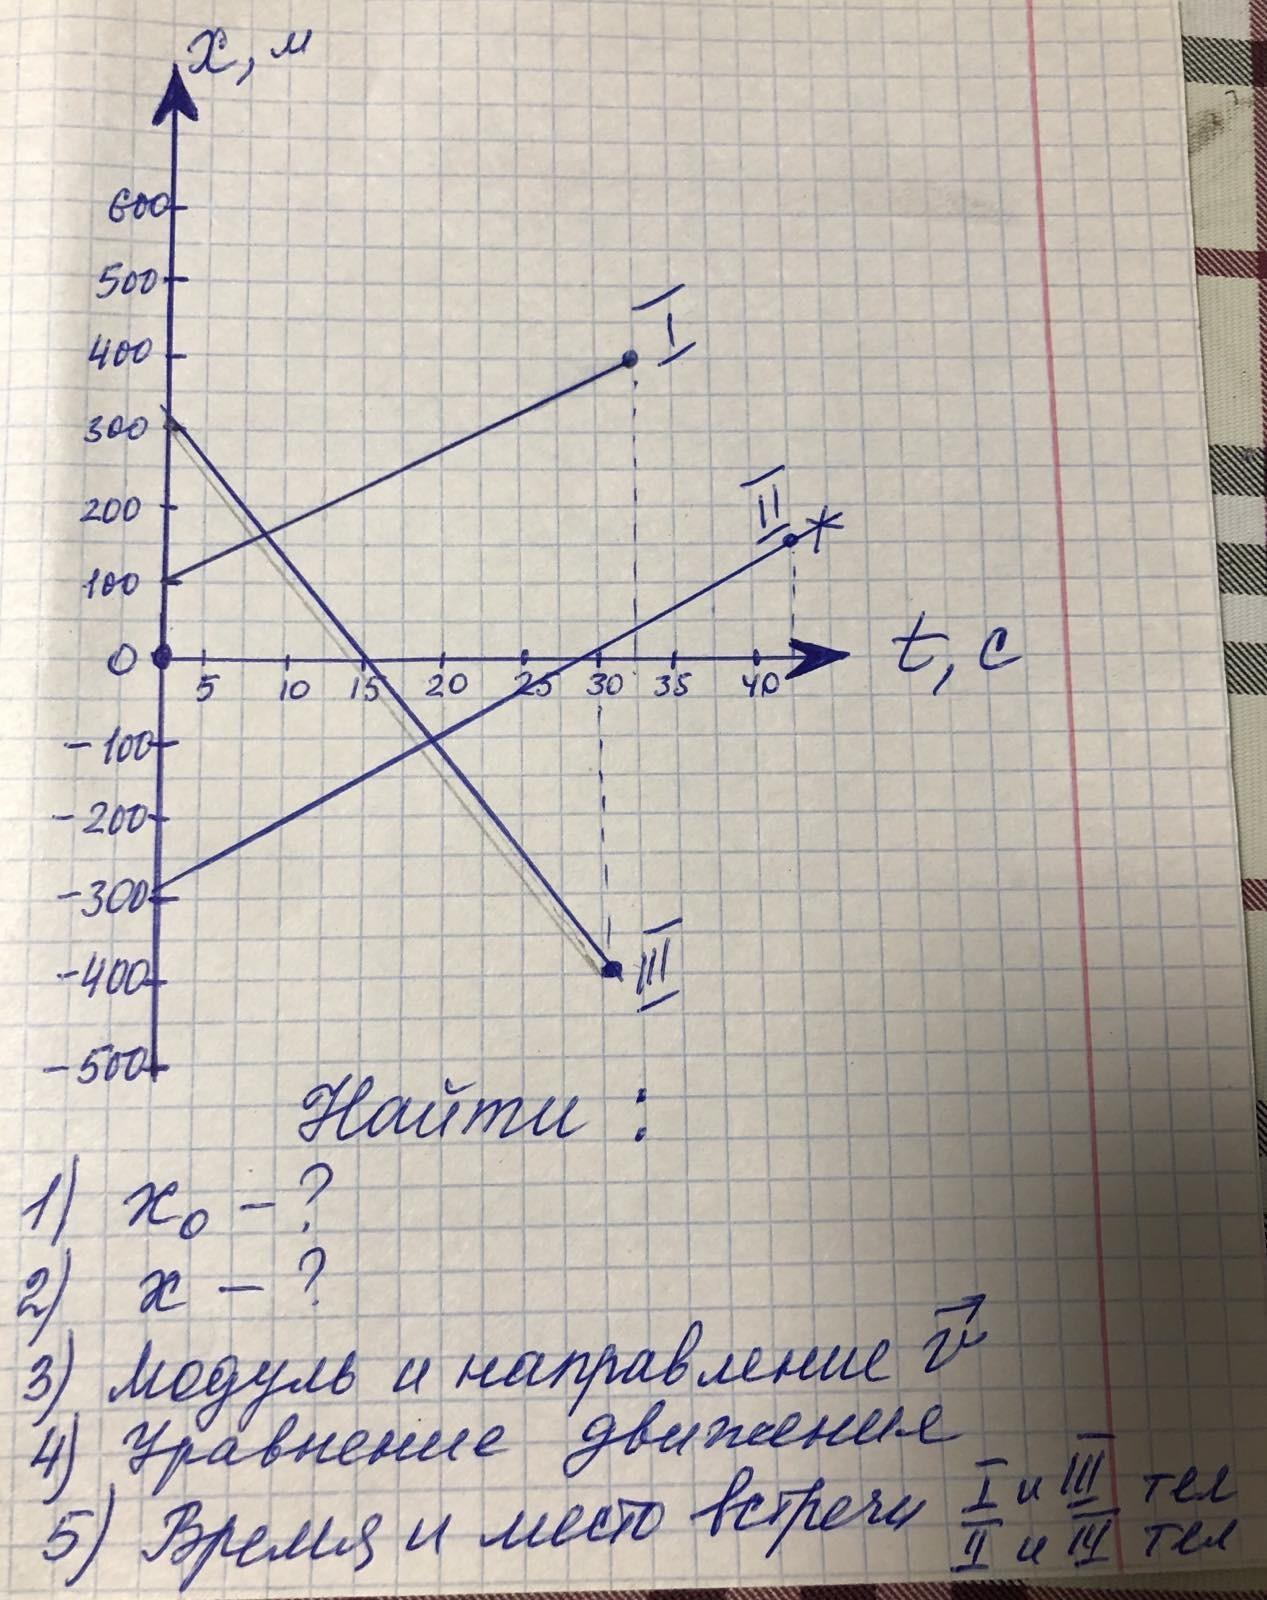 x, м
600
500
I
400
300
II *
200
100
0
t, с
5 10 15 20 25 30 35 40
-100
-200
-300
III
-400
-500
Найти :
1) x₀ - ?
2) x - ?
3) Модуль и направление v⃗
4) Уравнение движения
5) Время и место встречи I и III тел
II и III тел